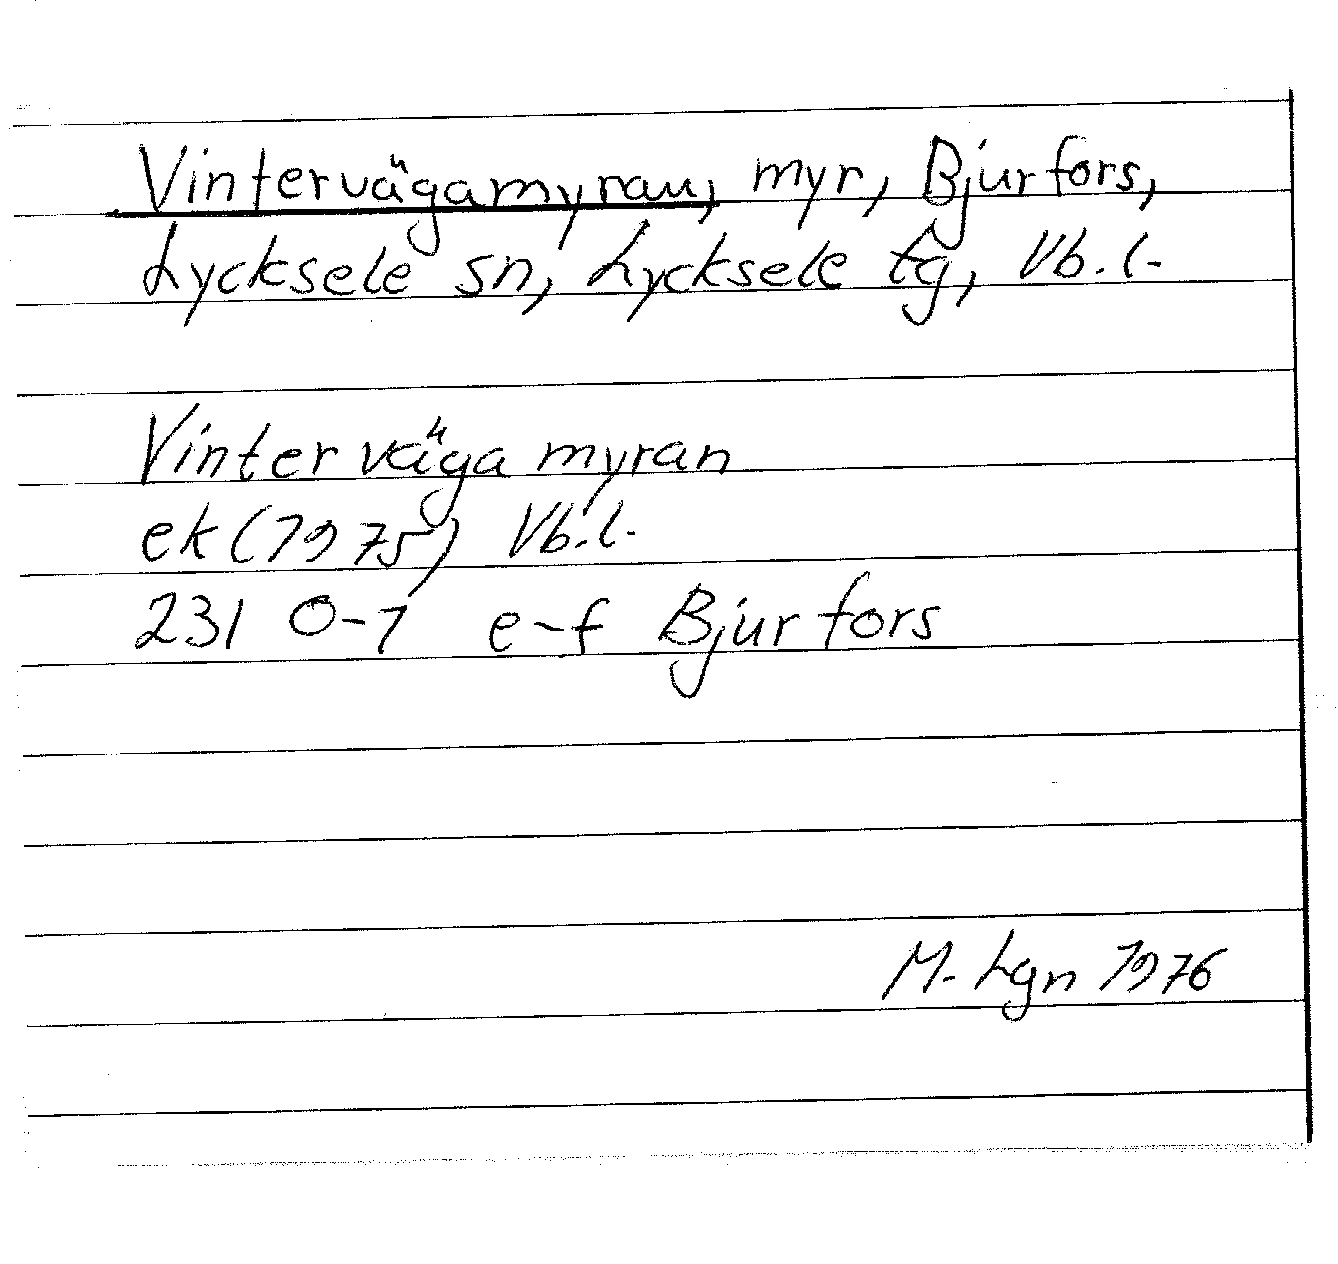 Vintervägamyran, myr, Bjurfors,
Lycksele sn, Lycksele tg, Vb.l.
Vintervägamyran
ek (1975) Vb.l.
231 0-1 e-f Bjurfors
M. Lgn 1976